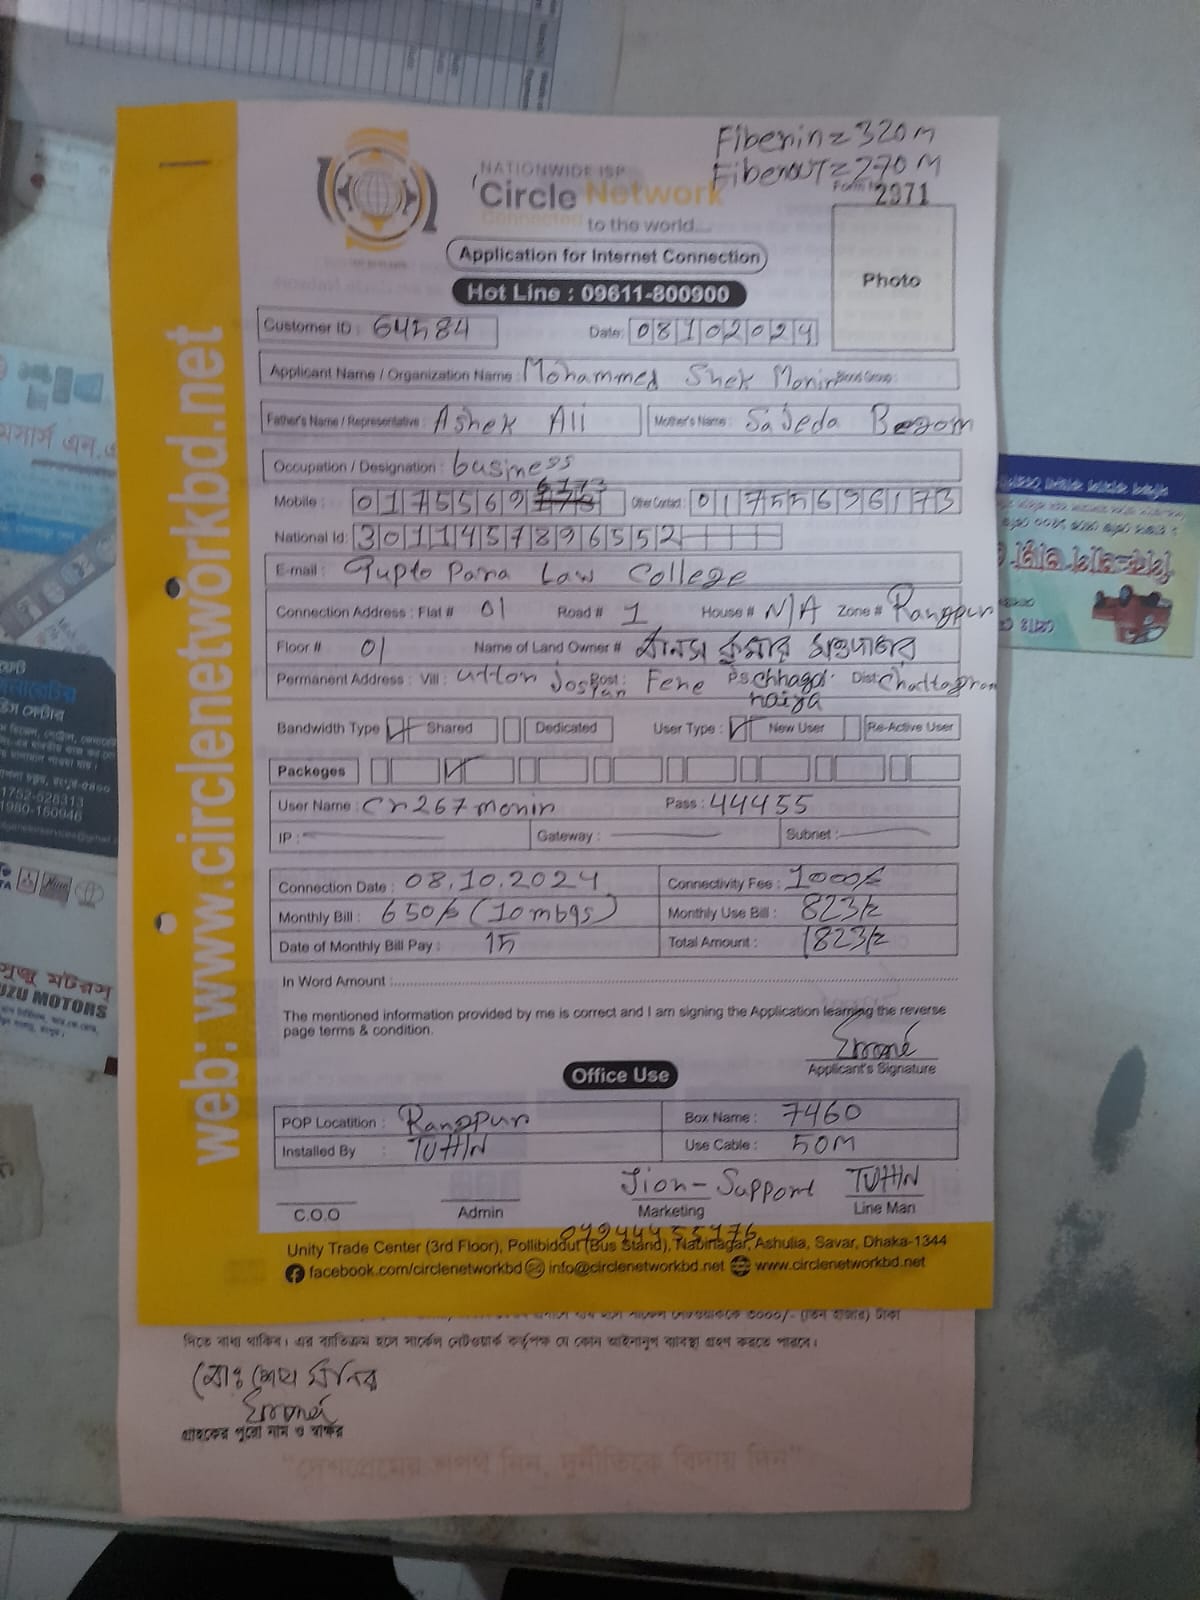 Fiberin = 320M
Fiberout = 270M
NATIONWIDE ISP
Circle Network
Connected to the world...
2971
Photo
Application for Internet Connection
Hot Line : 09611-800900
Customer ID : 64584 Date: 08102024
Applicant Name / Organization Name : Mohammed Shek Monir Blood Group :
Father's Name / Representative : Ashek Ali Mother's Name : Sajeda Begom
Occupation / Designation : business
Mobile : 01755696173 Other Contact : 01755696173
National Id: 3011457896552
E-mail : Gupto Para Law College
Connection Address : Flat # 01 Road # 1 House # N/A Zone # Rangpur
Floor # 01 Name of Land Owner #
Permanent Address : Vill : utton Post : Fene P.S Chhagal naiya Dist: Chattagram
Bandwidth Type Shared Dedicated User Type : New User Re-Active User
Packeges
User Name : Cr267monir Pass : 44455
IP : Gateway : Subnet :
Connection Date : 08.10.2024 Connectivity Fee : 1000/=
Monthly Bill : 650/= (10mbgs) Monthly Use Bill : 823/=
Date of Monthly Bill Pay : 15 Total Amount : 1823/=
In Word Amount :
The mentioned information provided by me is correct and I am signing the Application learning the reverse
page terms & condition.
Applicant's Signature
Office Use
POP Locatition : Rangpur Box Name : 7460
Installed By : TUHIN Use Cable : 50M
Jion-Support TUHIN
C.O.O Admin Marketing Line Man
Unity Trade Center (3rd Floor), Pollibiddut (Bus Stand), Nabinagar, Ashulia, Savar, Dhaka-1344
facebook.com/circlenetworkbd info@circlenetworkbd.net www.circlenetworkbd.net
web: www.circlenetworkbd.net
দিতে বাধ্য থাকিব। এর ব্যতিক্রম হলে সার্কেল নেটওয়ার্ক কর্তৃপক্ষ যে কোন আইনানুগ ব্যবস্থা গ্রহণ করতে পারবে।
মোঃ শেখ মনির
গ্রাহকের পুরো নাম ও স্বাক্ষর
"দেশপ্রেমের শপথ নিন, দুর্নীতিকে বিদায় দিন"
সুজু মটরস্
UZU MOTORS
1752-628313
1980-160946